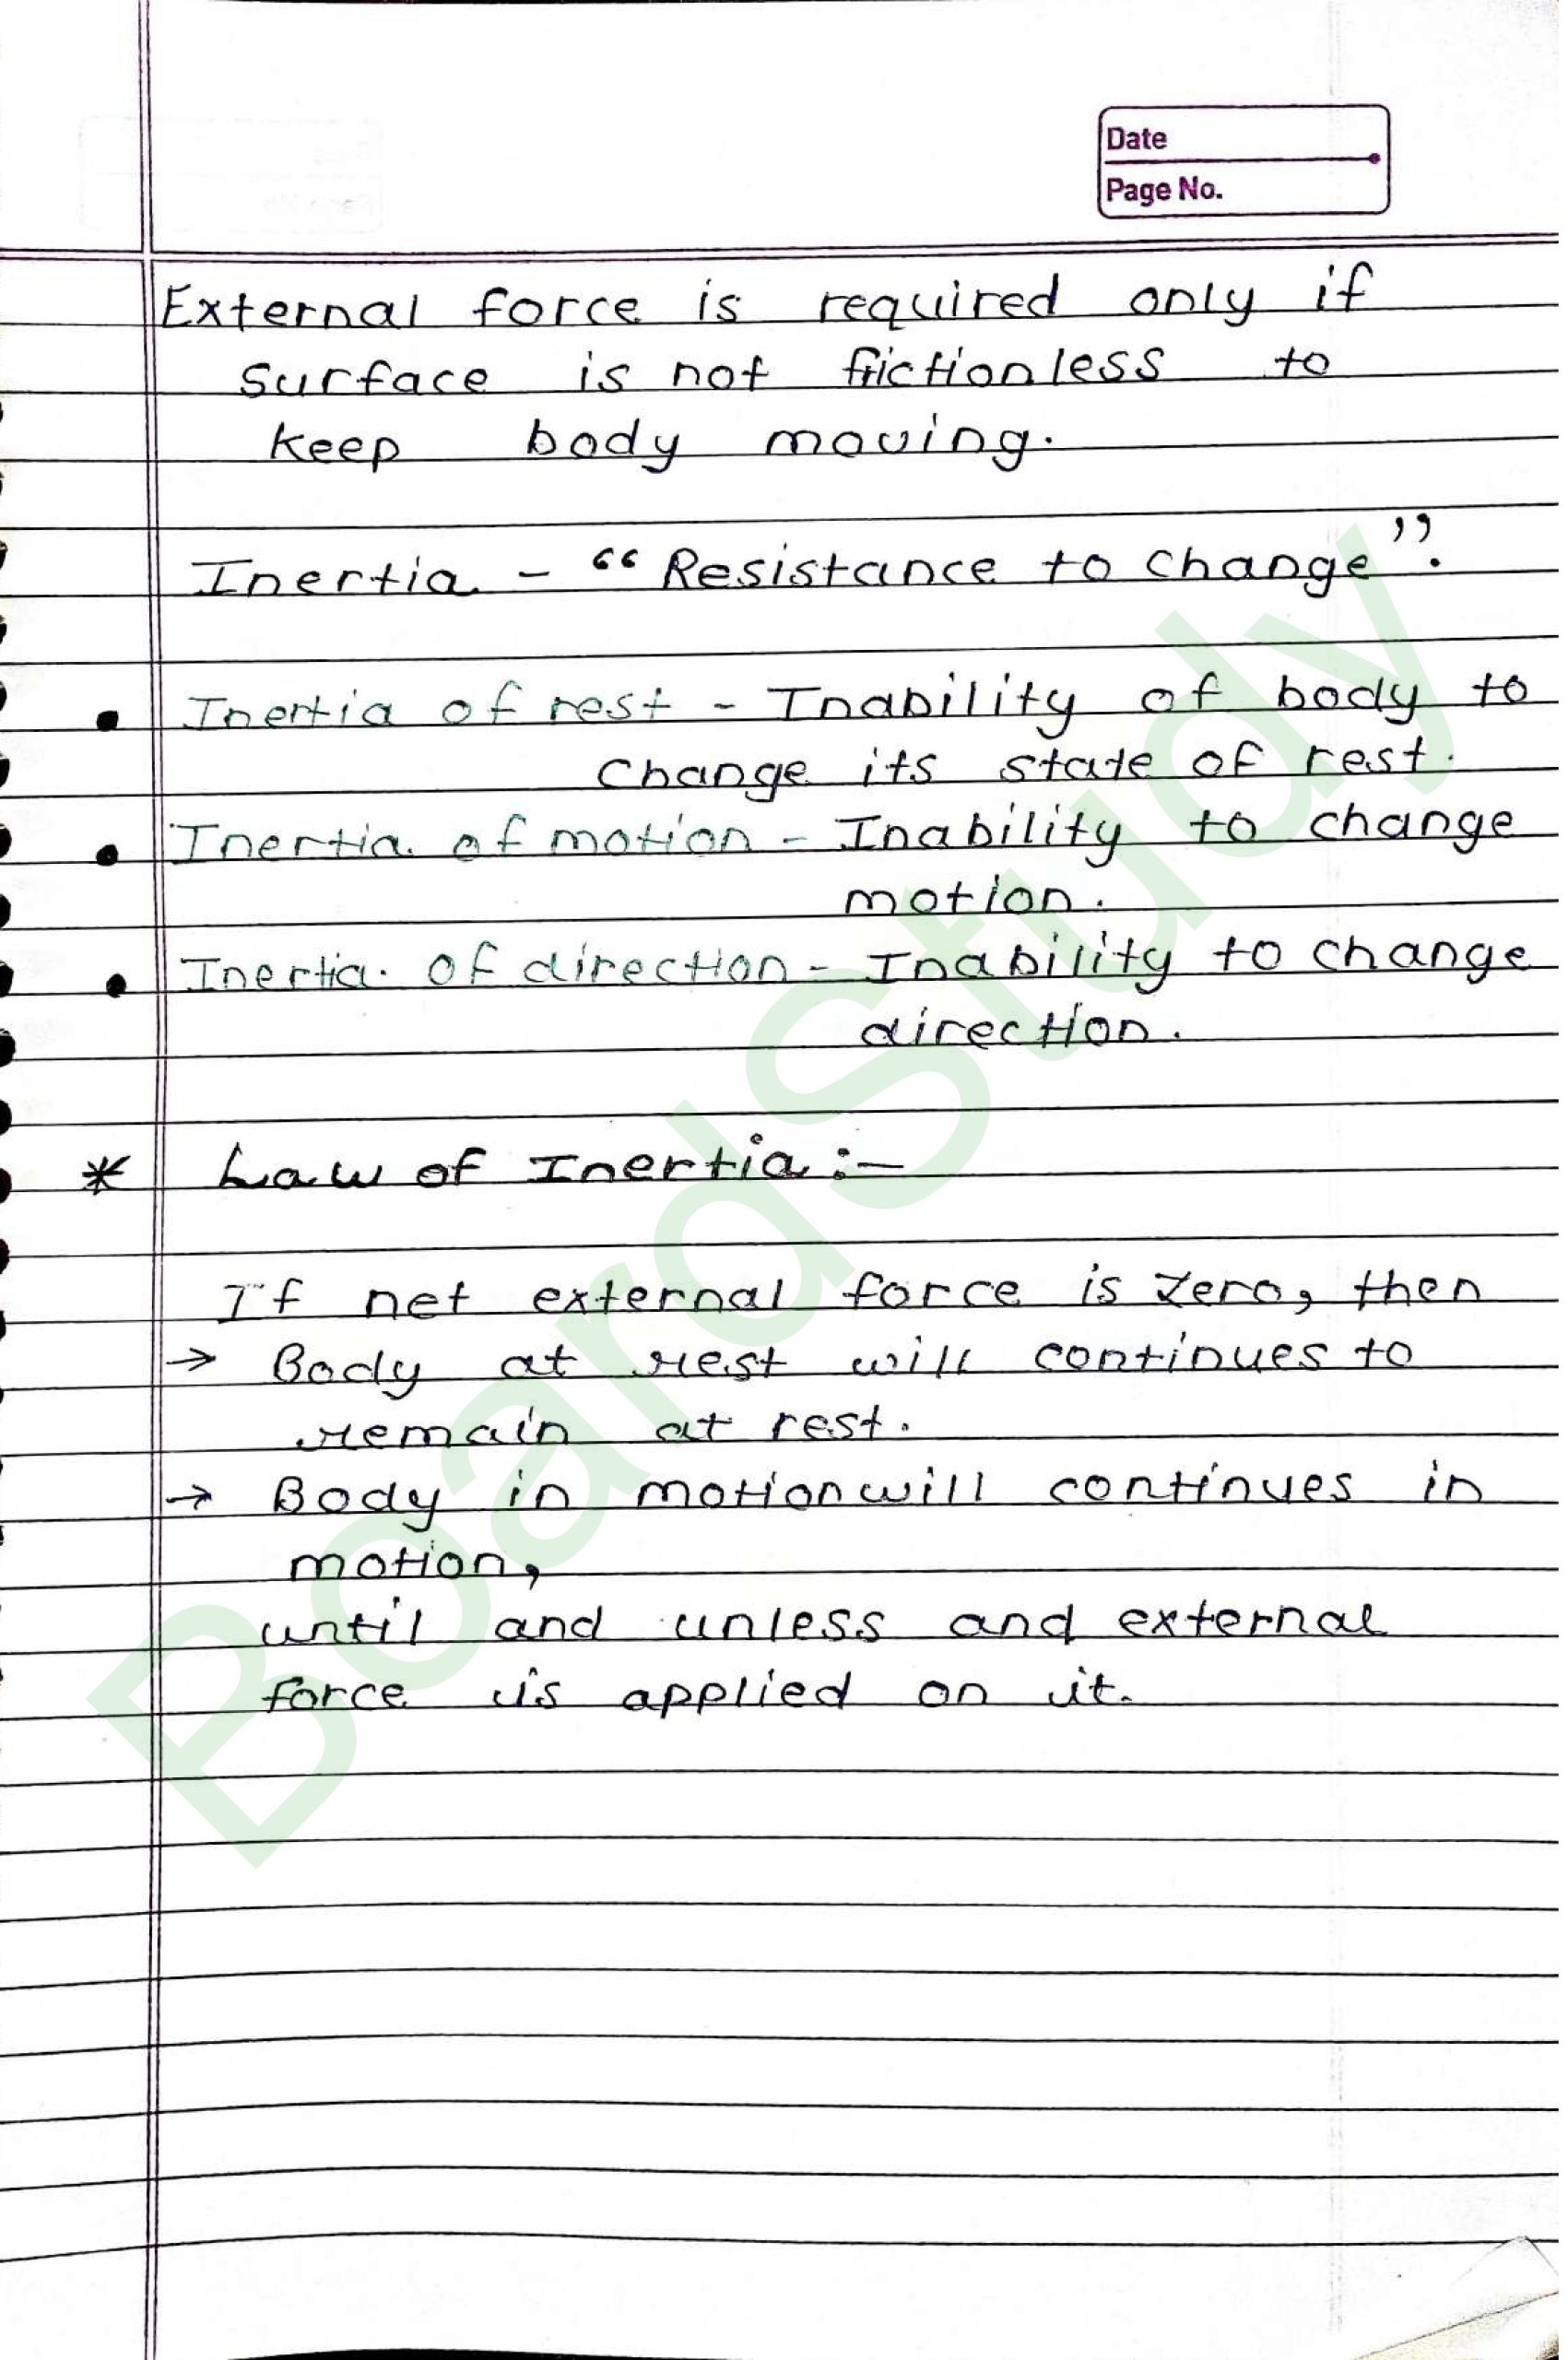 Date
Page No.
External force is required only if
surface is not frictionless to
keep body moving.
Inertia - “Resistance to change”.
• Inertia of rest - Inability of body to
change its state of rest.
• Inertia of motion - Inability to change
motion.
• Inertia of direction - Inability to change
direction.
* Law of Inertia :-
If net external force is zero, then
→ Body at rest will continues to
remain at rest.
→ Body in motion will continues in
motion,
until and unless and external
force is applied on it.
BoardStudy